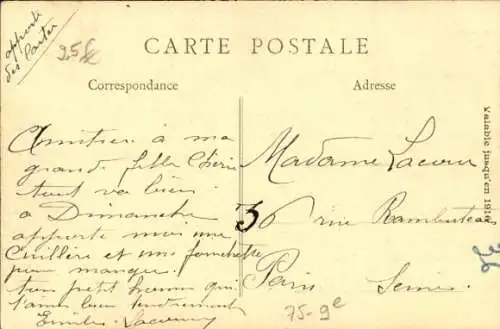 apporte
des Cartes
25f
CARTE POSTALE
Correspondance
Adresse
Amitiés à ma
grande fille Chérie
tout va bien
a Dimanche
apporte moi une
Cuillère et une fourchette
pour manger.
ton petit homme qui
t'aime bien tendrement
Emile Lacour
Madame Lacour
36 rue Rambuteau
Paris Seine
Valable jusqu'en 191
36
75-9e